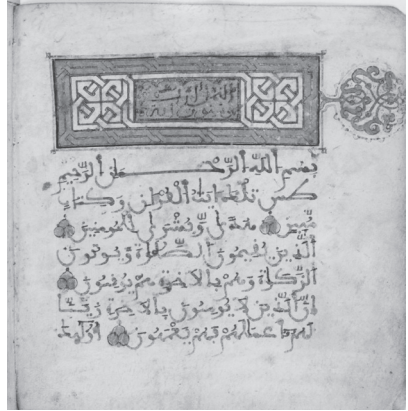 بِسْمِ اللهِ الرَّحْمٰنِ الرَّحِيمِ
طس تلك ءايت القرءان وكتاب
مبين هدى وبشرى للمومنين
الذين يقيمون الصلاة ويوتون
الزكاة وهم بالاخرة هم يوقنون
إن الذين لا يومنون بالاخرة زينا
لهم أعمالهم فهم يعمهون أوليك